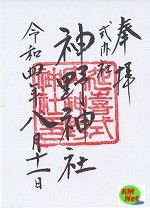 奉拝
式内社
神野神社
令和四年八月十一日
延喜式
神野
神社
KM
Net